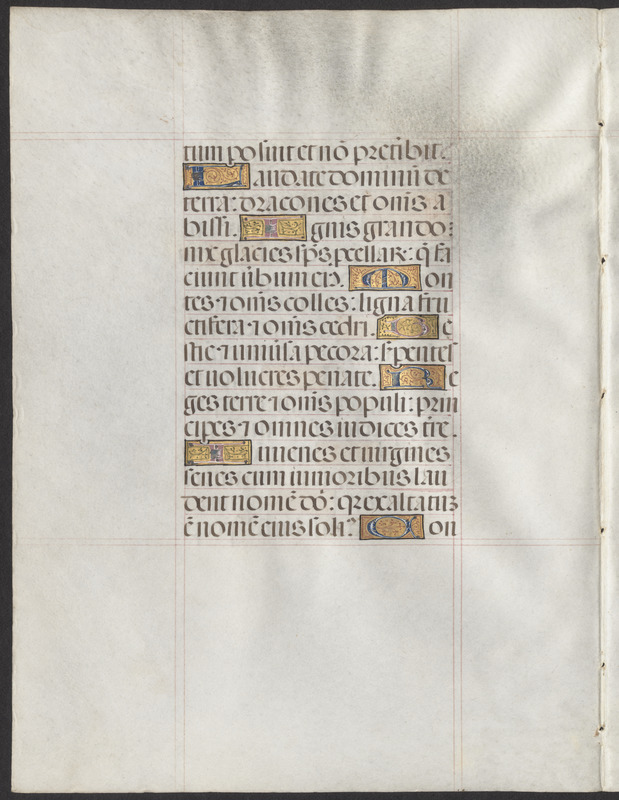 tum posuit et nō preteribit.
Laudate dominū de
terra: dracones et om̄s a
bissi. Ignis grando:
nix glacies sp̄s ꝓcellaꝝ: q̄ fa
ciunt ūbum eiꝰ. Mon
tes ⁊ om̄s colles: ligna fru
ctifera ⁊ om̄s cedri. Be
stie ⁊ uniūsa pecora: ẜpentes
et uolucres penate. Re
ges terre ⁊ om̄s populi: prin
cipes ⁊ omnes iudices t̄re.
Iuuenes et uirgines
senes cum iunioribus lau
dent nomē dō: qꝛ exaltatuꝫ
ē nomē eius soliꝰ. Con